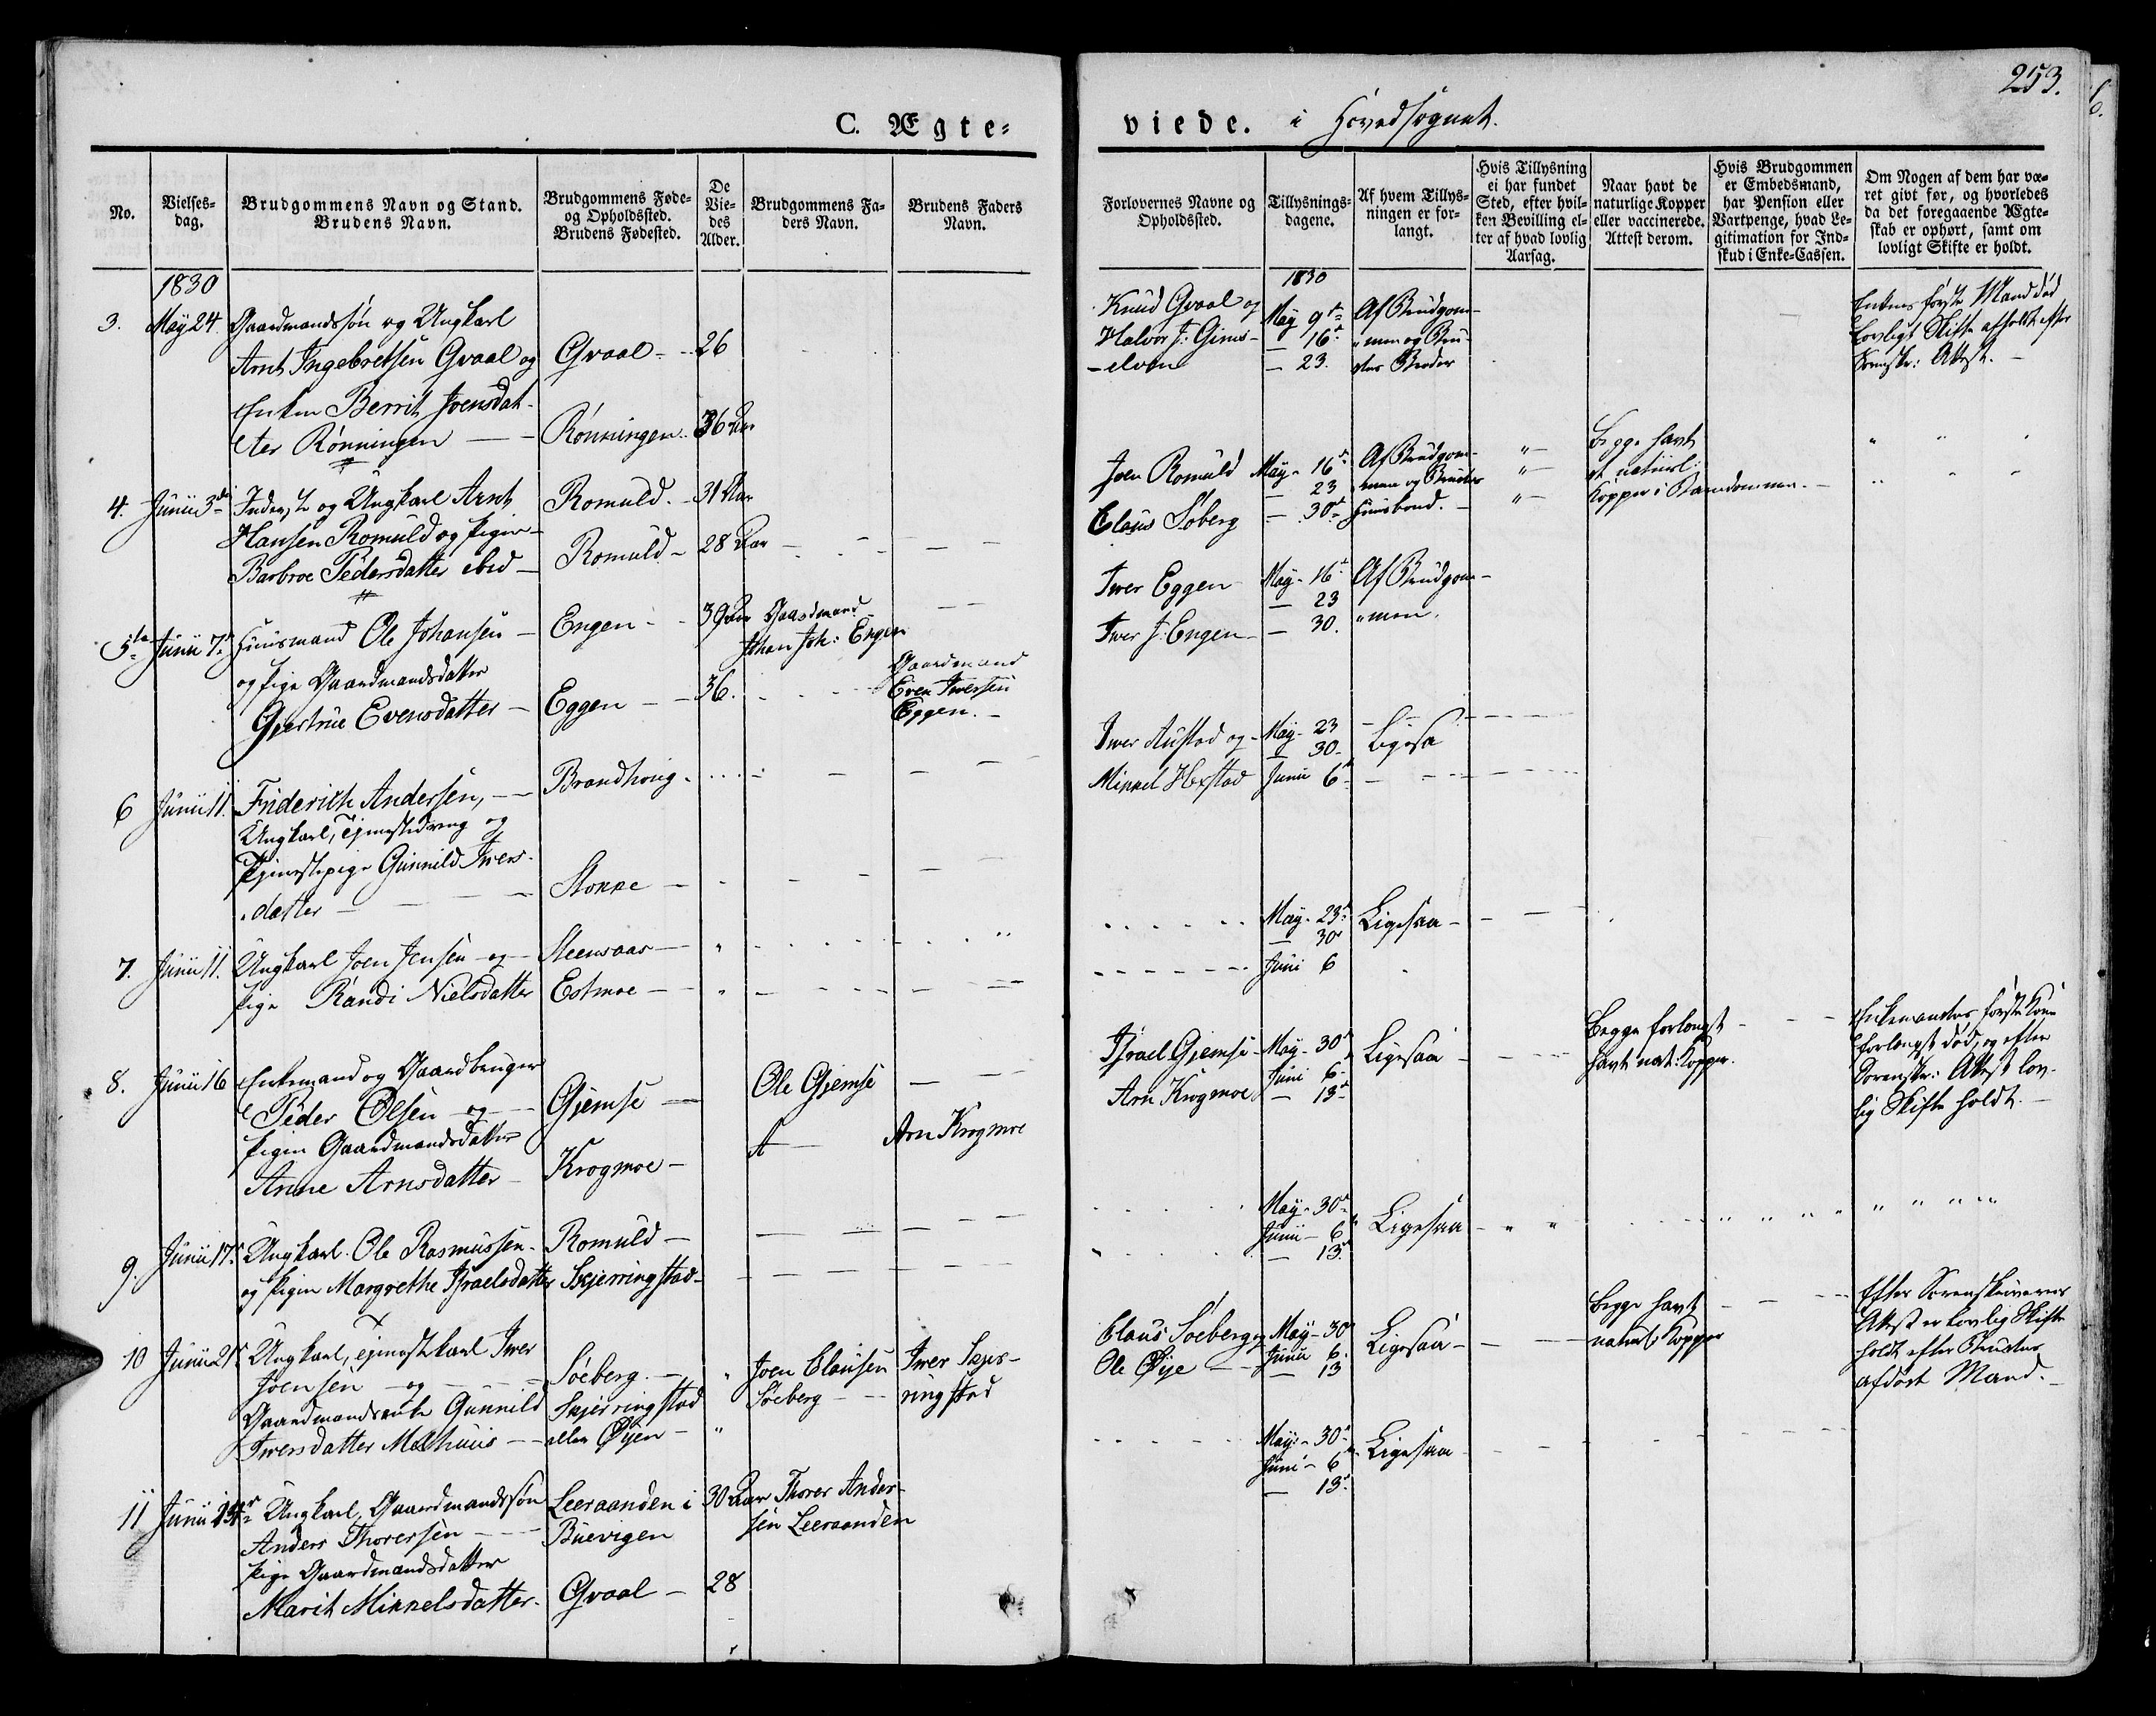 253.
C. Ægte-
viede. i Hovedsognet.
No.
Vielses-
dag.
Brudgommens Navn og Stand.
Brudens Navn.
Brudgommens Føde-
og Opholdssted.
Brudens Fødested.
De
Vie-
des
Alder.
Brudgommens Fa-
ders Navn.
Brudens Faders
Navn.
Forlovernes Navne og
Opholdssted.
Tillysnings-
dagene.
Af hvem Tillys-
ningen er for-
langt.
Hvis Tillysning
ei har fundet
Sted, efter hvil-
ken Bevilling el-
ler af hvad lovlig
Aarsag.
Naar havt de
naturlige Kopper
eller vaccinerede.
Attest derom.
Hvis Brudgommen
er Embedsmand,
har Pension eller
Vartpenge, hvad Le-
gitimation for Ind-
skud i Enke-Cassen.
Om Nogen af dem har væ-
ret givt før, og hvorledes
da det foregaaende Ægte-
skab er ophørt, samt om
lovligt Skifte er holdt.
1830
3. May 24. Gaardmandssøn og Ungkarl
Arnt Ingebretsen Gvaal og
Enken Berrit Joensdat-
ter Rönningen
Gvaal - 26
Rönningen 36 Aar
1830
Knud Gvaal og
Halvor J: Gims-
elven
May 9de
16de
23.
Af Brudgom-
men og Bru-
dens Broder
Enkens første Mand død
Lovligt Skifte afholdt efter
Sorenskr: Attest.
4. Junii 3die Inderste og Ungkarl Arnt
Hansen Romuld og Pigen
Barbroe Pedersdatter ibid
Romuld. - 31 Aar
Romuld - 28 Aar
Joen Romuld
Claus Söberg
May - 16de
23
30te
Af Brudgom-
men og Brudens
Huusbond.
Begge havt
de naturl:
Kopper i Barndommen.
5te Junii 7de Huusmand Ole Johansen
og Pige Gaardmandsdatter
Gjertrue Evensdatter
Engen - 39 Aar
Eggen - 36.
Gaardmand
Johan Joh: Engen
Gaardmand
Even Iversen
Eggen.
Iver Eggen
Iver J: Engen
May - 16de
23
30.
Af Brudgom-
men.
6 Junii 11. Friderich Andersen,
Ungkarl, Tjenestedreng og
Tjenestepige Gunnild Ivers-
datter
Brandhoug.
Stokke
Iver Austad og
Mikkel Hofstad
May - 23
30
Junii 6te
Ligesaa
7. Junii 11. Ungkarl Joen Jensen og
Pige Randi Nielsdatter
Steensaas
Estmoe
May - 23de
30te
Juni 6
Ligesaa
8. Junii 16 Enkemand og Gaardbruger
Peder Olsen og
Pigen Gaardmandsdatter
Anne Arnsdatter
Gjemse
Krogmoe
Ole Gjemse
Arn Krogmoe
Israel Gjemse
Arn Krogmoe
May - 30te
Juni 6
13de
Ligesaa
Begge forlængst
havt nat: Kopper.
Enkemandens første Kone
forlængst død, og efter
Sorenskr: Attest lov-
lig Skifte holdt.
9. Junii 17de Ungkarl Ole Rasmussen
og Pigen Margrethe Israelsdatter
Romuld
Skjerringstad
May - 30te
Junii - 6
13.
Ligesaa
10 Junii 21de Ungkarl, Tjenestekarl Iver
Joensen og
Gaardmandsenke Gunnild
Iversdatter Melhuus
Söeberg.
Skjerringstad
eller Øyen
Joen Clausen
Söeberg
Iver Skjer-
ringstad
Claus Söeberg og
Ole Øye
May - 30
Junii 6.
13
Ligesaa
Begge havt
naturl: Kopper
Efter Sorenskriverens
Attest er Lovlig Skifte
holdt efter Brudens
afdøde Mand.
11 Junii Ungkarl, Gaardmandssøn
Anders Thorersen
Pige Gaardmandsdatter
Marit Mikkelsdatter
Leeraanden i
Buevigen
Gvaal
30 Aar
28
Thorer Ander-
sen Leeraanden
May - 30te
Juni - 6
13.
Ligesaa